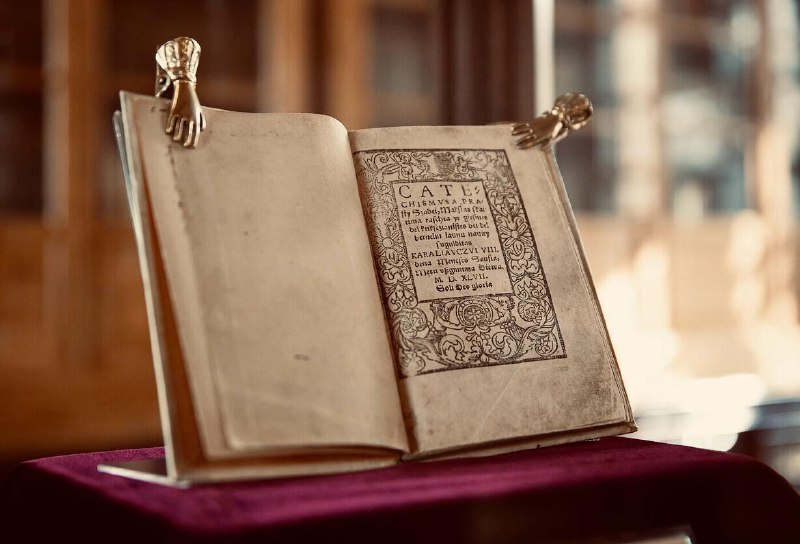 CATE=
CHISMVSA PRA=
sty Szadei, Makslas skai=
tima raschta yr giesmes
del kriksczianistes bei del
berneliu iaunu nauiey
sugulditas
KARALIAVCZVI VIII.
dena Meneses Sausia,
Metu vszgimima Diewa.
M. D. XLVII.
Soli Deo gloria